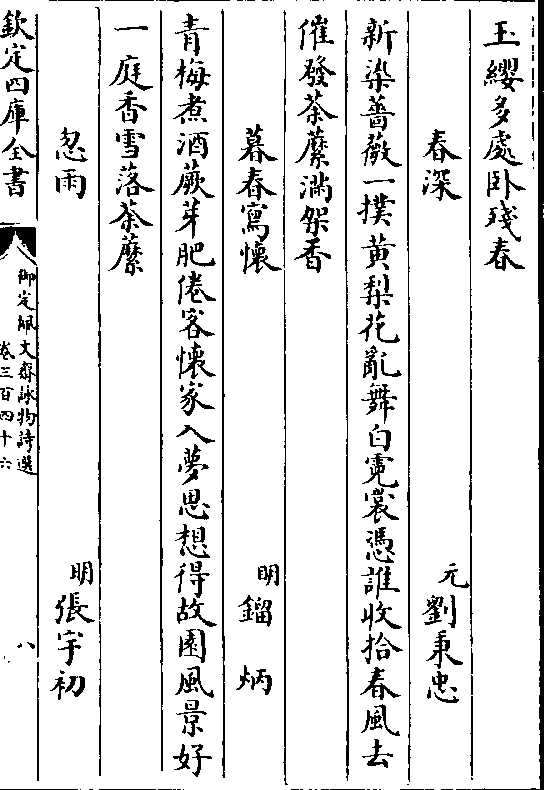 玉纓多處臥殘春
春深
元劉秉忠
新染薔薇一撲黄梨花亂舞白霓裳憑誰收拾春風去
催發荼䕷滿架香
暮春寫懷
明鎦炳
青梅煮酒蕨芽肥倦客懷家入夢思想得故園風景好
一庭香雪落荼䕷
忽雨
明張宇初
欽定四庫全書
御定佩文齋詠物詩選
卷三百四十六
八